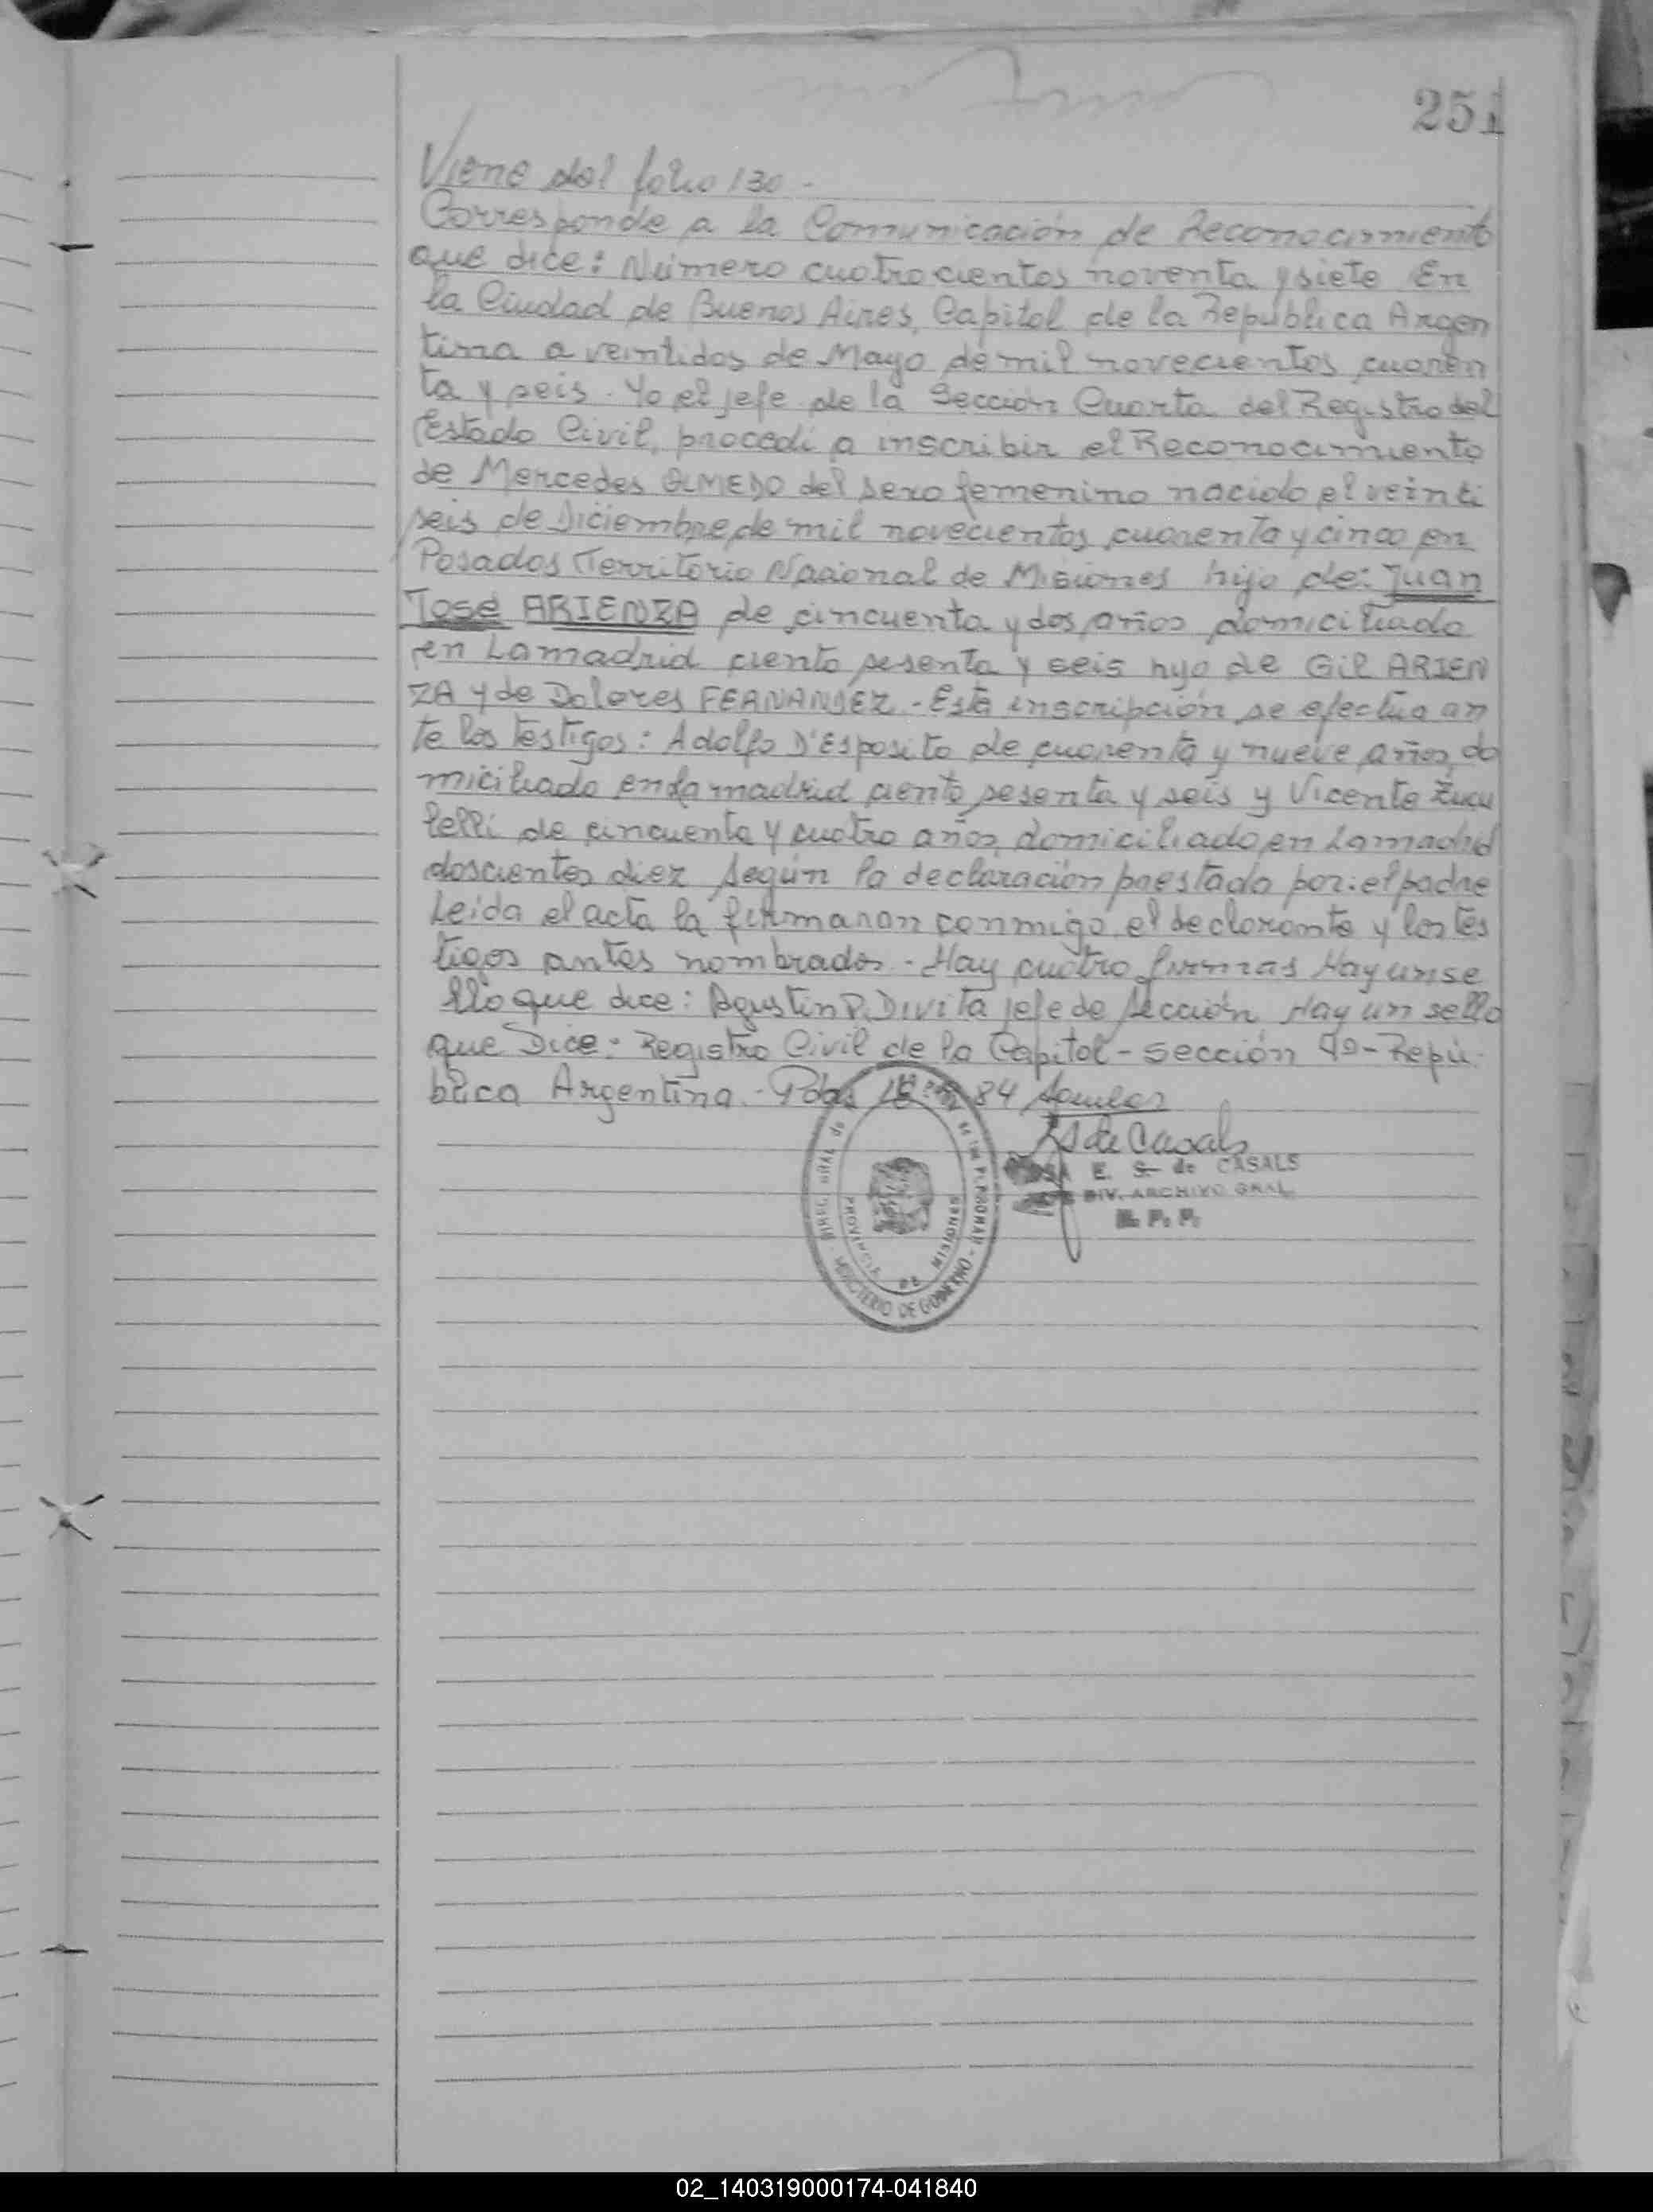 251
Viene del folio 130.-
Corresponde a la Comunicación de Reconocimiento
que dice: Número cuatrocientos noventa y siete En
la Ciudad de Buenos Aires, Capital de la Republica Argen
tina a veintidos de Mayo de mil novecientos cuaren
ta y seis. Yo el jefe de la Sección Cuarta del Registro del
Estado Civil, procedi a inscribir el Reconocimiento
de Mercedes OLMEDO del sexo femenino nacido el veinti
seis de Diciembre de mil novecientos cuarenta y cinco en
Posadas Territorio Nacional de Misiones hijo de: Juan
José ARIENZA de cincuenta y dos años domiciliado
en Lamadrid ciento sesenta y seis hijo de Gil ARIEN
ZA y de Dolores FERNANDEZ.- Esta inscripción se efectúa an
te los testigos: Adolfo D'Esposito de cuarenta y nueve años, do
miciliado en Lamadrid ciento sesenta y seis y Vicente Zucu
lelli de cincuenta y cuatro años, domiciliado en Lamadrid
doscientos diez según la declaración prestada por: el padre
Leida el acta la firmaron conmigo, el declarante y los tes
tigos antes nombrados.- Hay cuatro firmas Hay un se
llo que dice: Agustin P. Divita jefe de Sección Hay un sello
que Dice: Registro Civil de la Capital - Sección 4a - Repú
blica Argentina.- Pdas 84
S de Casals
E. S. de CASALS
DIV. ARCHIVO GRAL.
R. P. P.
MINISTERIO DE GOBIERNO
PROVINCIA DE MISIONES
02_140319000174-041840